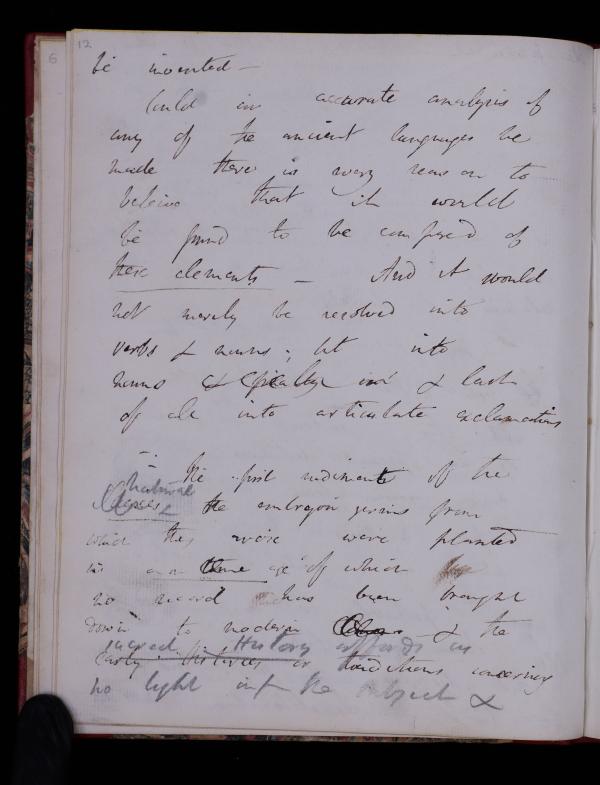 6
12
be invented —
Could an accurate analysis of
any of the ancient languages be
made there is every reason to
beleive that it would
be found to be composed of
these elements — And it would
not merely be resolved into
verbs & nouns; but into
nouns & & last
of all into articulate exclamations
— The first rudiments of the
natural
the embryon germs from
which they were planted
in an age of which
no record has been brought
down to modern & the
sacred History affords us
early histories or traditions concerning
no light into the subject &